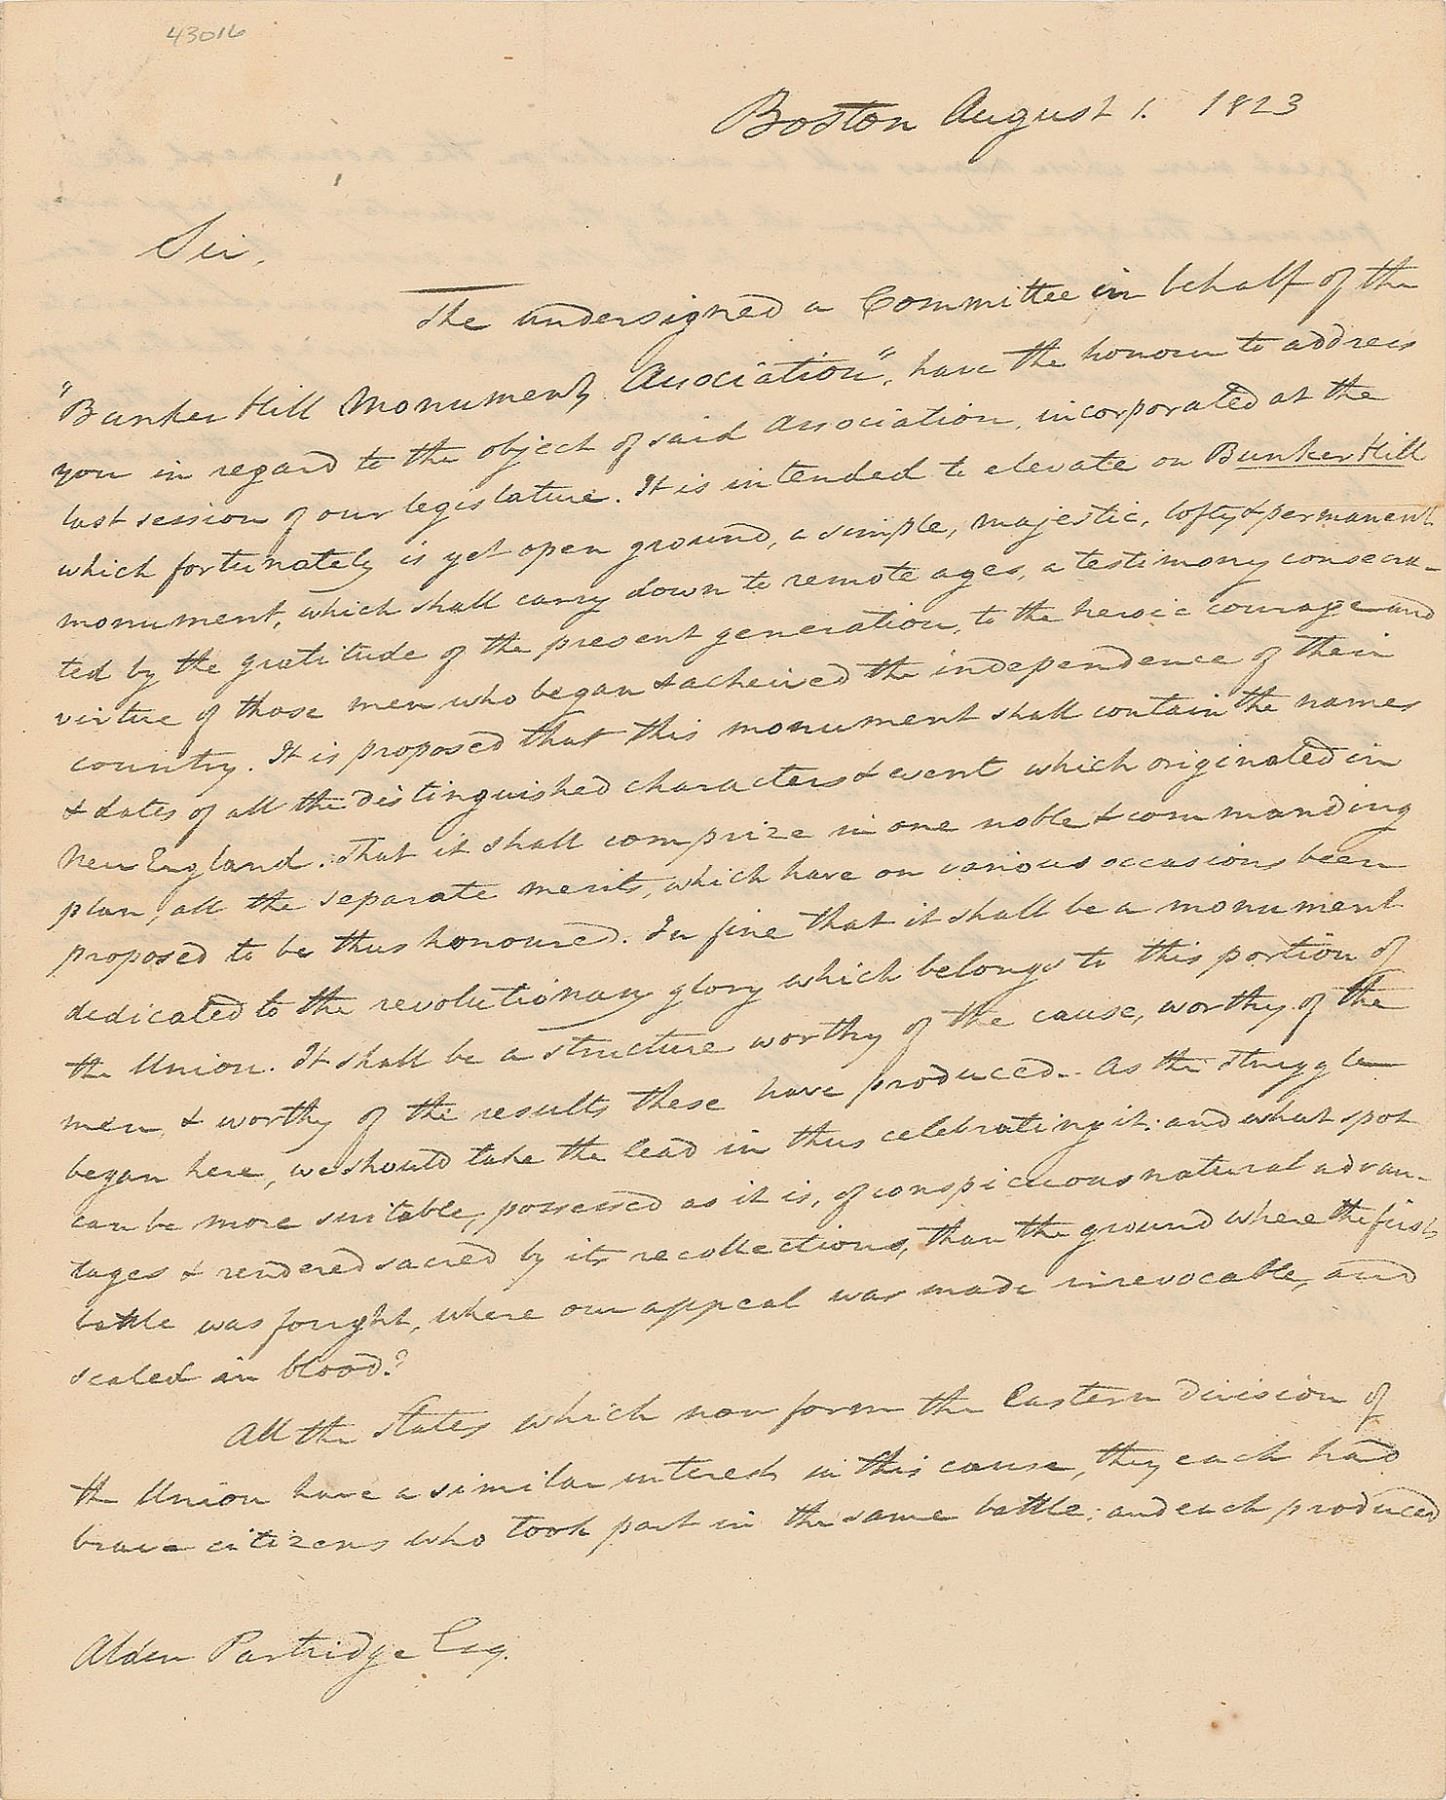 43016
Boston August 1. 1823
Sir,
The undersigned a Committee in behalf of the
"Bunker Hill Monument Association", have the honour to address
you in regard to the object of said Association, incorporated at the
last session of our legislature. It is intended to elevate on Bunker Hill
which fortunately is yet open ground, a simple, majestic, lofty & permanent
monument, which shall carry down to remote ages, a testimony consecra-
ted by the gratitude of the present generation, to the heroic courage and
virtue of those men who began & acheived the independence of their
country. It is proposed that this monument shall contain the names
& dates of all the distinguished characters & event which originated in
New England. That it shall comprize in one noble & commanding
plan, all the separate merits, which have on various occasions been
proposed to be thus honoured. In fine that it shall be a monument
dedicated to the revolutionary glory which belongs to this portion of
the Union. It shall be a structure worthy of the cause, worthy of the
men, & worthy of the results these have produced. As the struggle
began here, we should take the lead in thus celebrating it: and what spot
can be more suitable, possessed as it is, of conspicuous natural advan-
tages & rendered sacred by its recollections, than the ground where the first
battle was fought, where our appeal was made irrevocable, and
sealed in blood?
All the States which now form the Eastern division of
the Union have a similar interest in this cause, they each had
brave citizens who took part in the same battle; and each produced
Alden Partridge Esq.